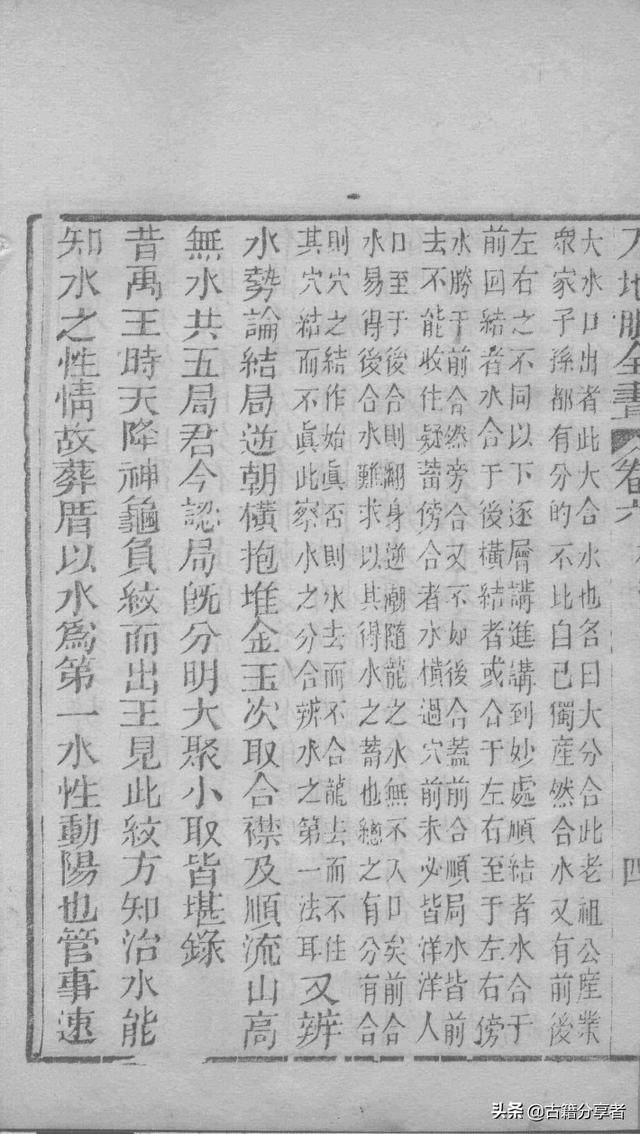 地眼全書 卷六 四
大水口出者此大合水也名曰大分合此老祖公産業
衆家子孫都有分的不比自己獨産然合水又有前後
左右之不同以下逐層講進講到妙處順結者水合于
前回結者水合于後橫結者或合于左右至于左右傍
水勝于前合然旁合又不如後合蓋前合順局水皆前
去不能收住疑蓄傍合者水橫過穴前未必皆洋洋人
口至于後合則翻身逆潮隨龍之水無不入口矣前合
水易得後合水難求以其得水之蓄也總之有分有合
則穴之結作始眞否則水去而不合龍去而不住
其穴結而不眞此察水之分合辨水之第一法耳 又辨
水勢論結局逆朝橫抱堆金玉次取合襟及順流山高
無水共五局君今認局旣分明大聚小取皆堪錄
昔禹王時天降神龜負紋而出王見此紋方知治水能
知水之性情故葬厝以水爲第一水性動陽也管事速
头条 @古籍分享者